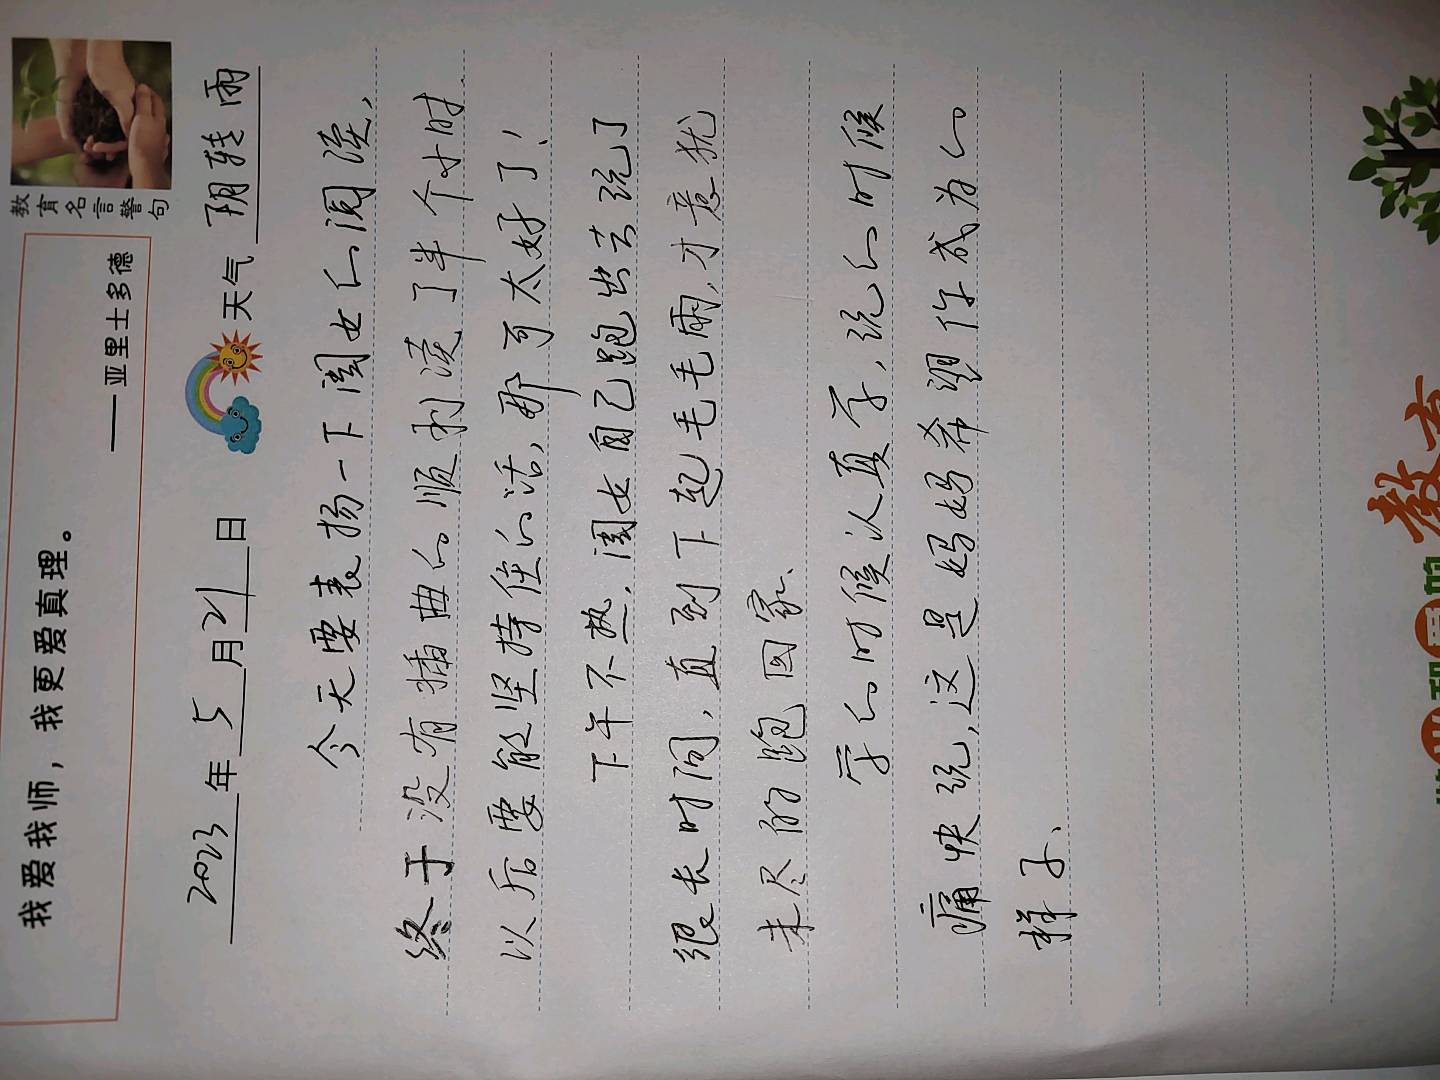 教育名言警句
我爱我师，我更爱真理。
——亚里士多德
2023年5月21日 天气 阴转雨
今天要表扬一下闺女的阅读，
终于没有插曲的顺利读了半个小时
以后要能坚持住的话，那可太好了！
下午不热，闺女自己跑出去玩了
很长时间，直到下起毛毛雨，才意犹
未尽的跑回家、
学的时候认真学，玩的时候
痛快玩，这是妈妈希望你成为的
样子、
教育